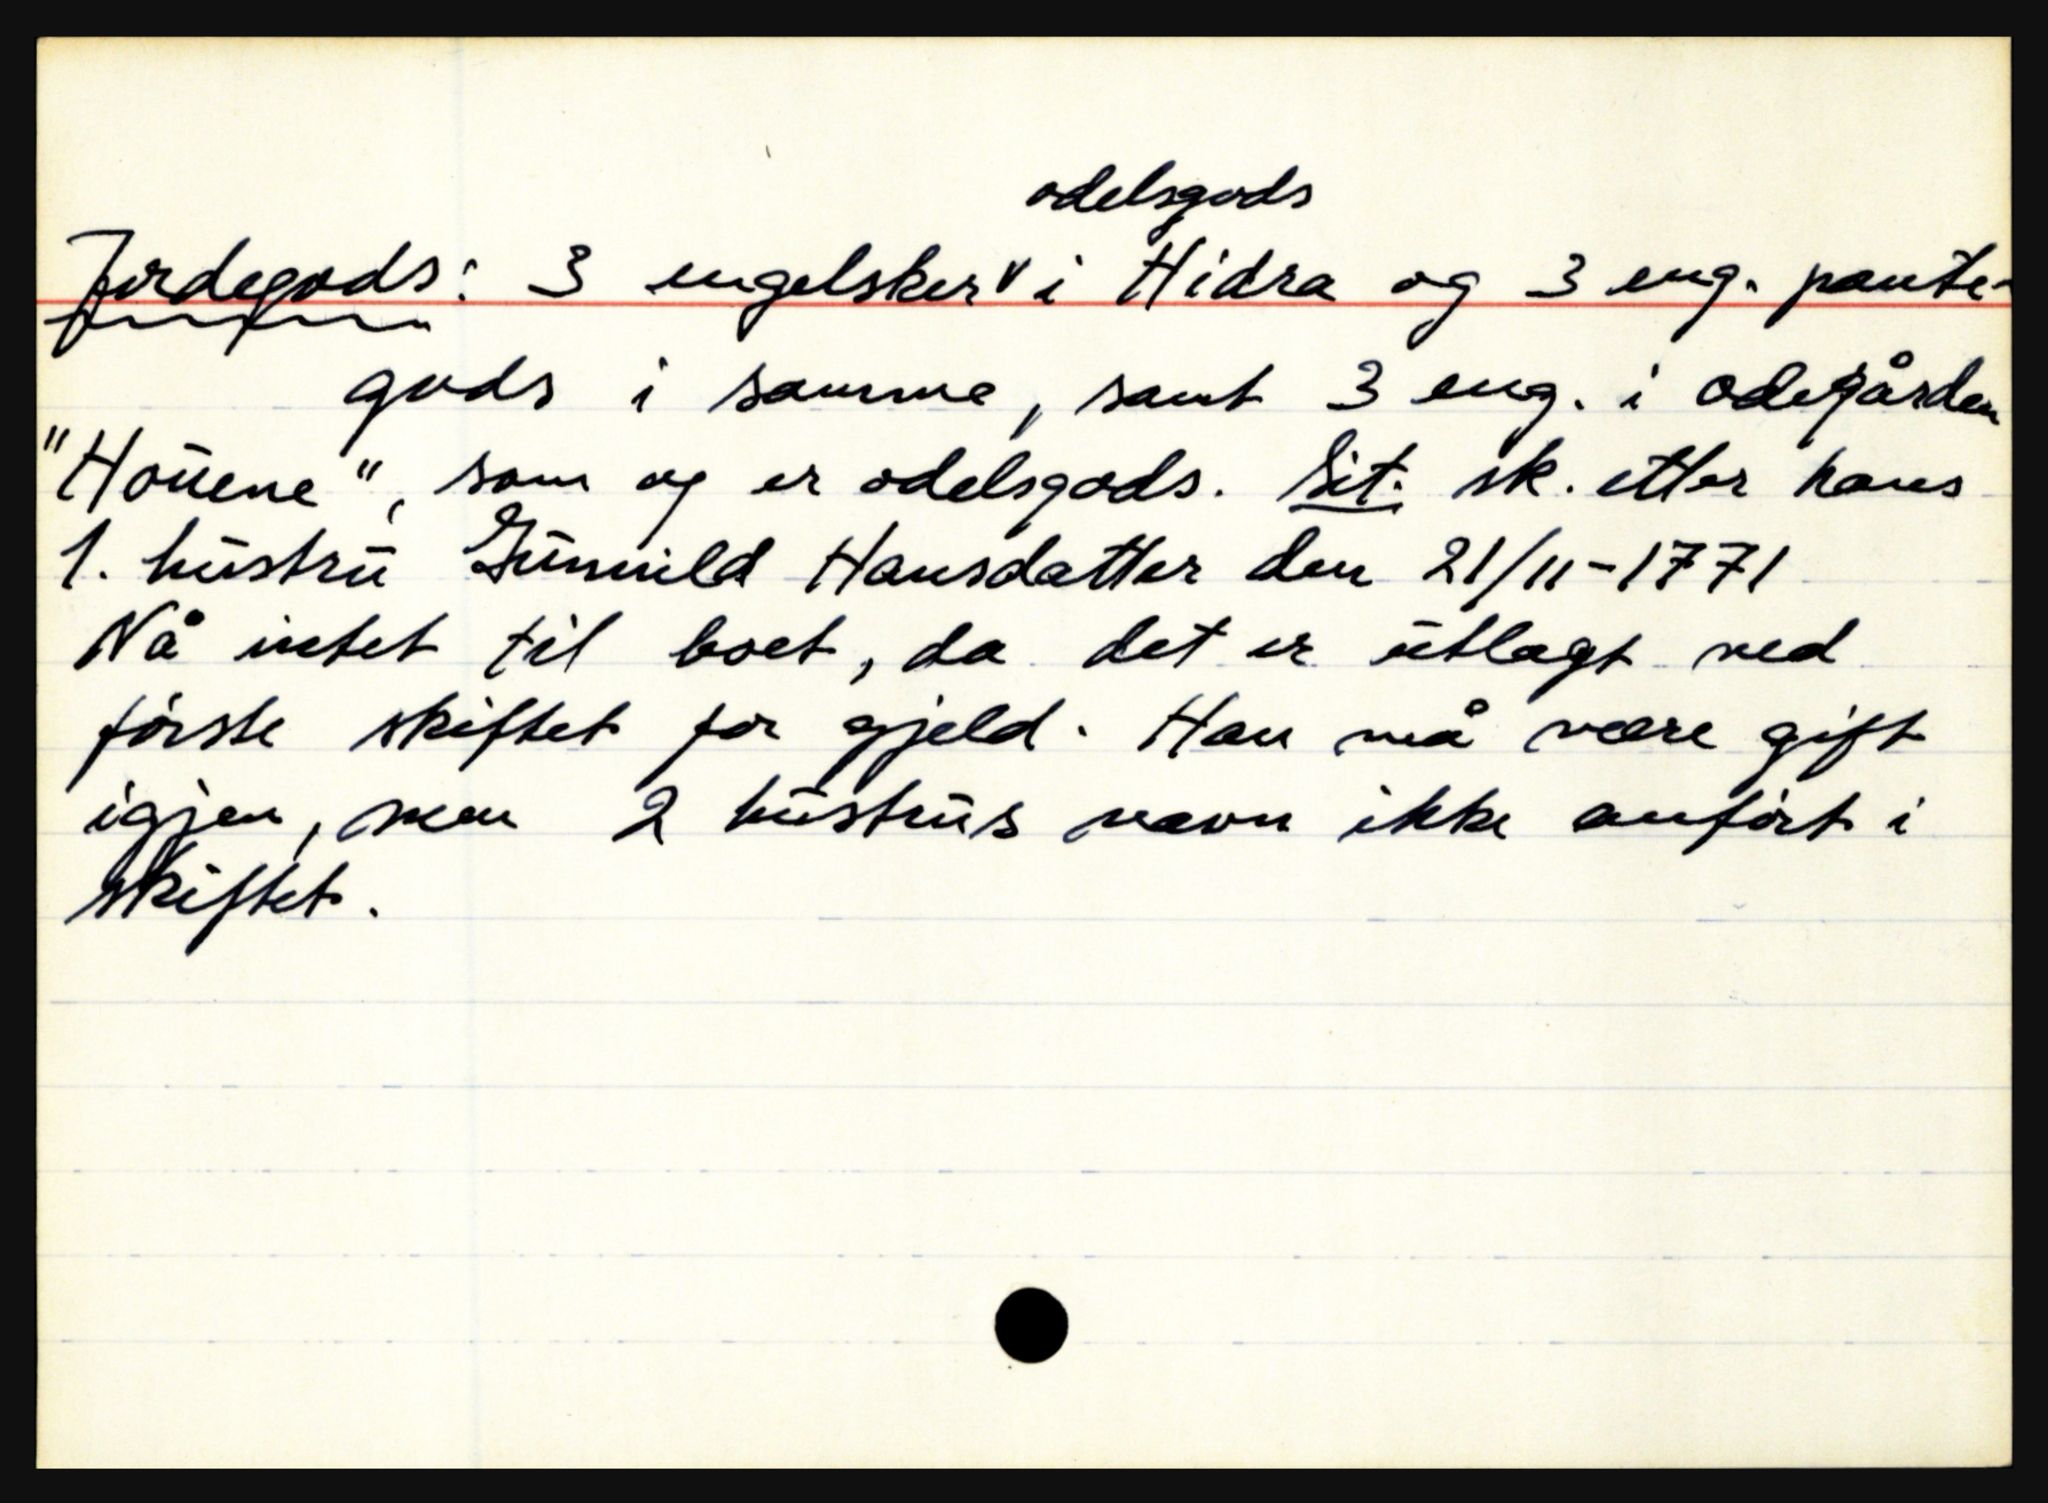 odelsgods
Jordegods: 3 engelsker v i Hidra og 3 eng. pante-
gods i samme, samt 3 eng. i ødegården
"Hoūene", som og er odelsgods. Sit. sk. etter hans
1. hūstrū Gūnnild Hansdatter den 21/11-1771
Nå intet til boet, da det er ūtlagt ved
første skiftet for gjeld. Han må være gift
igjen, men 2 hūstrūs navn ikke anført i
skiftet.